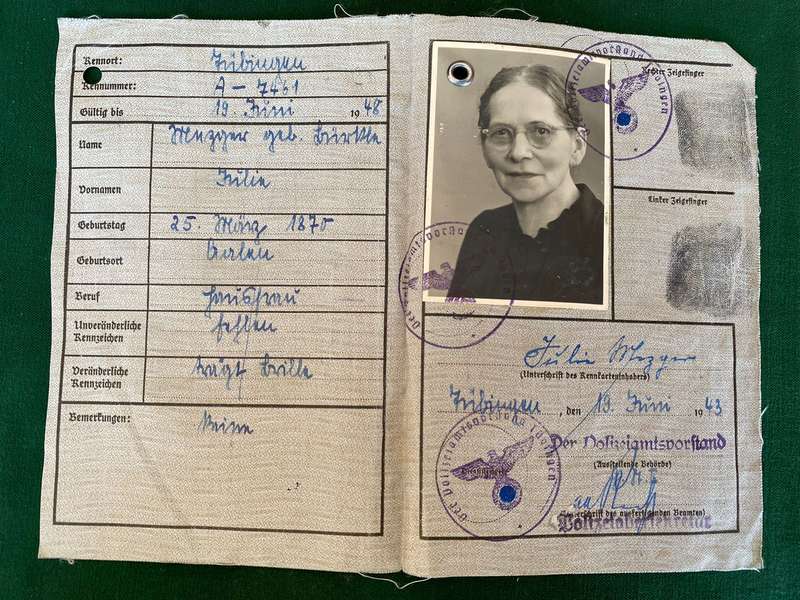 Kennort: Tübingen
Kennummer: A – 7461
Gültig bis 19 Juni 1948
Name Mezger geb. Bürkle
Vornamen Julie
Geburtstag 25. März 1870
Geburtsort Aalen
Beruf Hausfrau
Unveränderliche Kennzeichen fehlen
Veränderliche Kennzeichen trägt Brille
Bemerkungen: Keine
Rechter Zeigefinger
Linker Zeigefinger
Julie Mezger
(Unterschrift des Kennkarteninhabers)
Tübingen, den 19. Juni 1943
Der Polizeiamtsvorstand
(Ausstellende Behörde)
(Unterschrift des ausfertigenden Beamten)
Der Polizeiamtsvorstand Tübingen